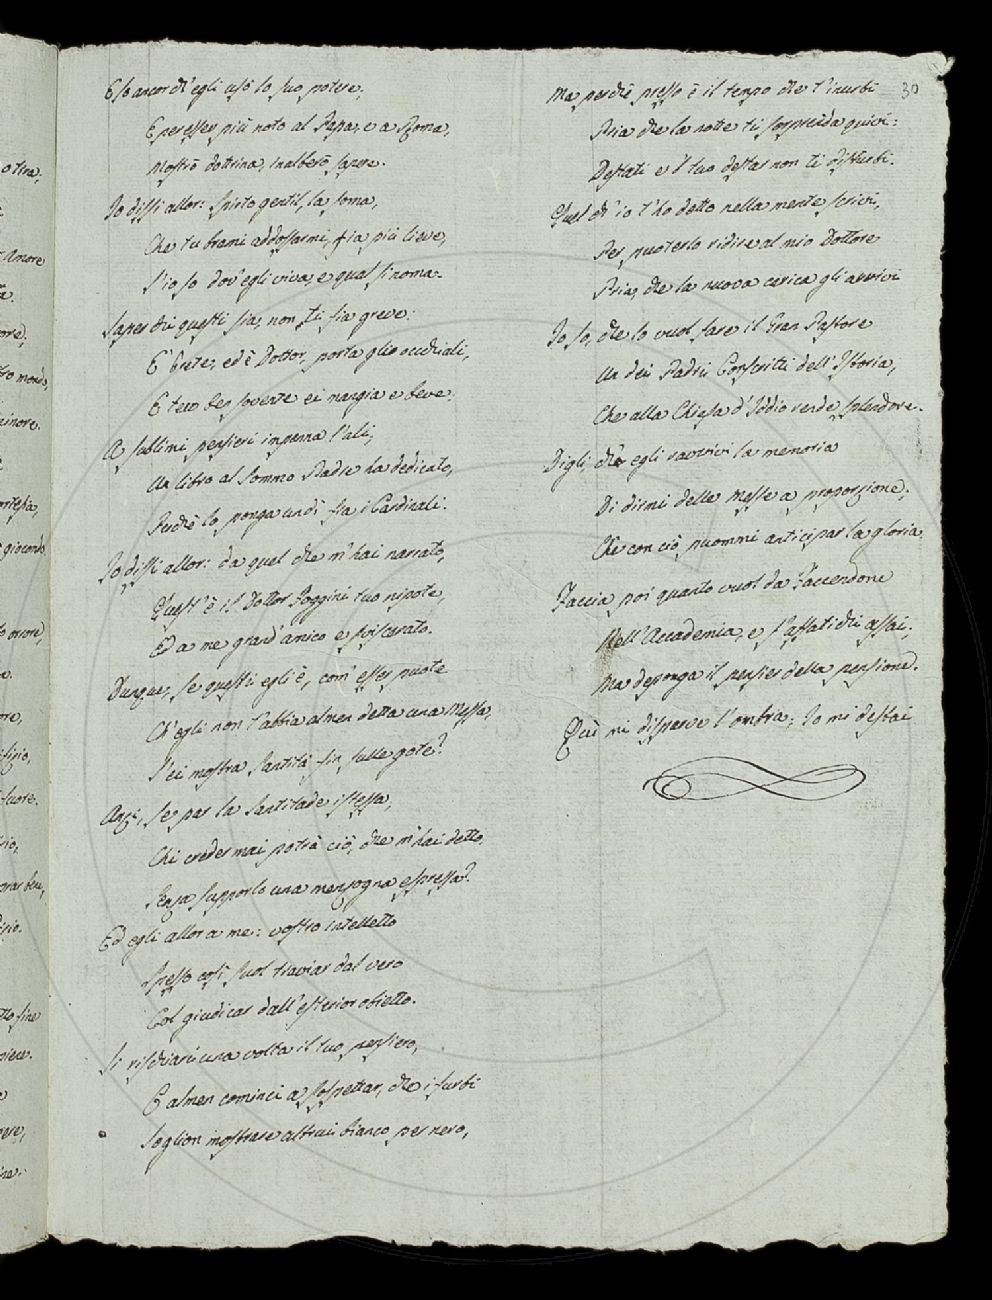 E so ancor ch'egli usò lo suo potere,
E per esser più noto al Papa, e a Roma,
Mostrò dottrina, inalberò sapere.
Io dissi allor: Spirto gentil, la soma,
Che tu brami addossarmi, fia più lieve,
S'io so dov'egli viva, e qual si noma.
Saper chi questi sia, non ti sia greve:
È Prete, ed è Dottor, porta gli occhiali,
E teco ben sovente ei mangia e beve.
A sublimi pensieri impenna l'ali,
Un libro al Sommo Padre ha dedicato,
Perchè lo ponga un dì fra i Cardinali.
Io dissi allor: da quel che m'hai narrato,
Quest'è il Dottor Foggini tuo nipote,
Ed a me grand'amico e sviscerato.
Dunque, se questi egli è, com'esser puote
Ch'egli non t'abbia almen detta una Messa,
S'ei mostra Santità fin sulle gote?
Anzi, se par la Santitade istessa,
Chi creder mai potrà ciò, che m'hai detto,
Senza supporlo una menzogna espressa?
Ed egli allor a me: vostro intelletto
Spesso così suol traviar dal vero
Col giudicar dall'esterior obietto.
Si rischiari una volta il tuo pensiero,
E almen cominci a sospettar, che i furbi
Soglion mostrare altrui bianco per nero,
30
Ma perchè presso è il tempo che t'inurbi
Pria che la notte ti sorprenda quivi:
Destati e 'l tuo destar non ti disturbi.
Quel ch'io t'ho detto nella mente scrivi,
Per puoterlo ridire al mio Dottore
Pria, che la nuova carica gli arrivi
Io so, che lo vuol fare il Gran Pastore
Un dei Padri Conscritti dell'Istoria,
Che alla Chiesa d'Iddio rende splendore.
Digli, che egli ravvivi la memoria
Di dirmi delle Messe a proporzione;
Che con ciò puommi anticipar la gloria.
Faccia poi quanto vuol da Faccendone
Nell'Accademia, e s'affatichi assai;
Ma deponga il pensier della pensione.
Qui mi disparve l'ombra; Io mi destai